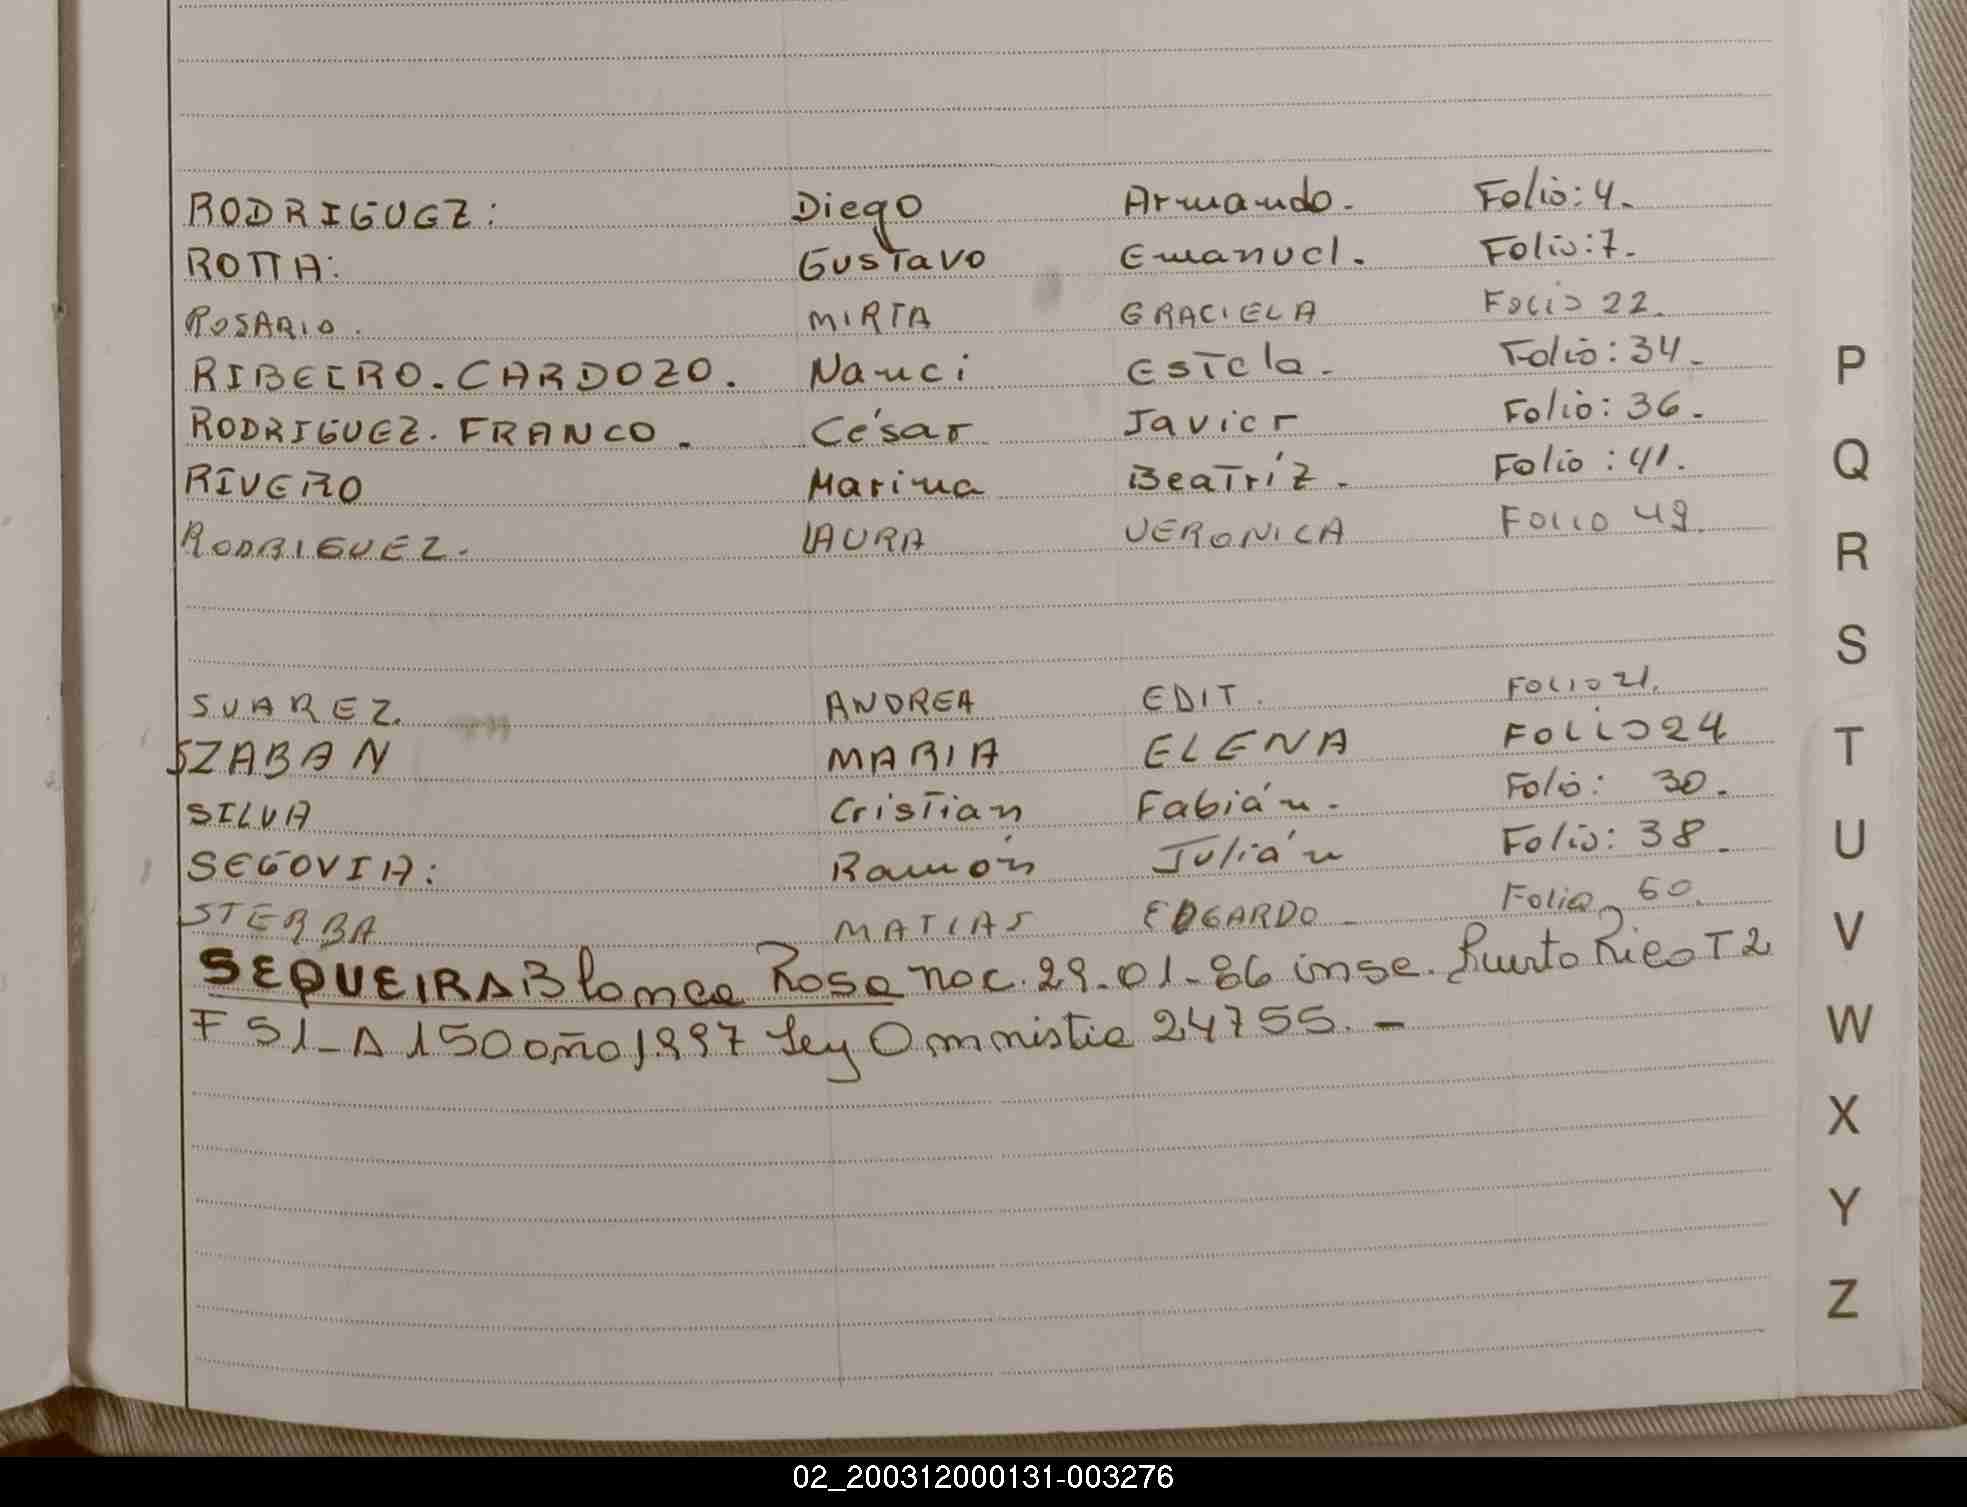 RODRIGUEZ: Diego Armando. Folio: 4.
ROTTA: Gustavo Emanuel. Folio: 7.
ROSARIO. MIRTA GRACIELA FOLIO 22.
RIBEIRO. CARDOZO. Nanci Estela. Folio: 34.
RODRIGUEZ. FRANCO. César Javier Folio: 36.
RIVERO Marina Beatríz. Folio: 41.
RODRIGUEZ. LAURA VERONICA FOLIO 49.
SUAREZ. ANDREA EDIT. FOLIO 21.
SZABAN MARIA ELENA FOLIO 24
SILVA Cristian Fabián. Folio: 30.
SEGOVIA: Ramón Julián Folio: 38.
STERBA MATIAS EDGARDO - Folio 60.
SEQUEIRA Blanca Rosa nac. 29-01-86 insc. Puerto Rico T 2
F 51-A 150 año 1997 Ley Omnistia 24755. -
P
Q
R
S
T
U
V
W
X
Y
Z
02_200312000131-003276